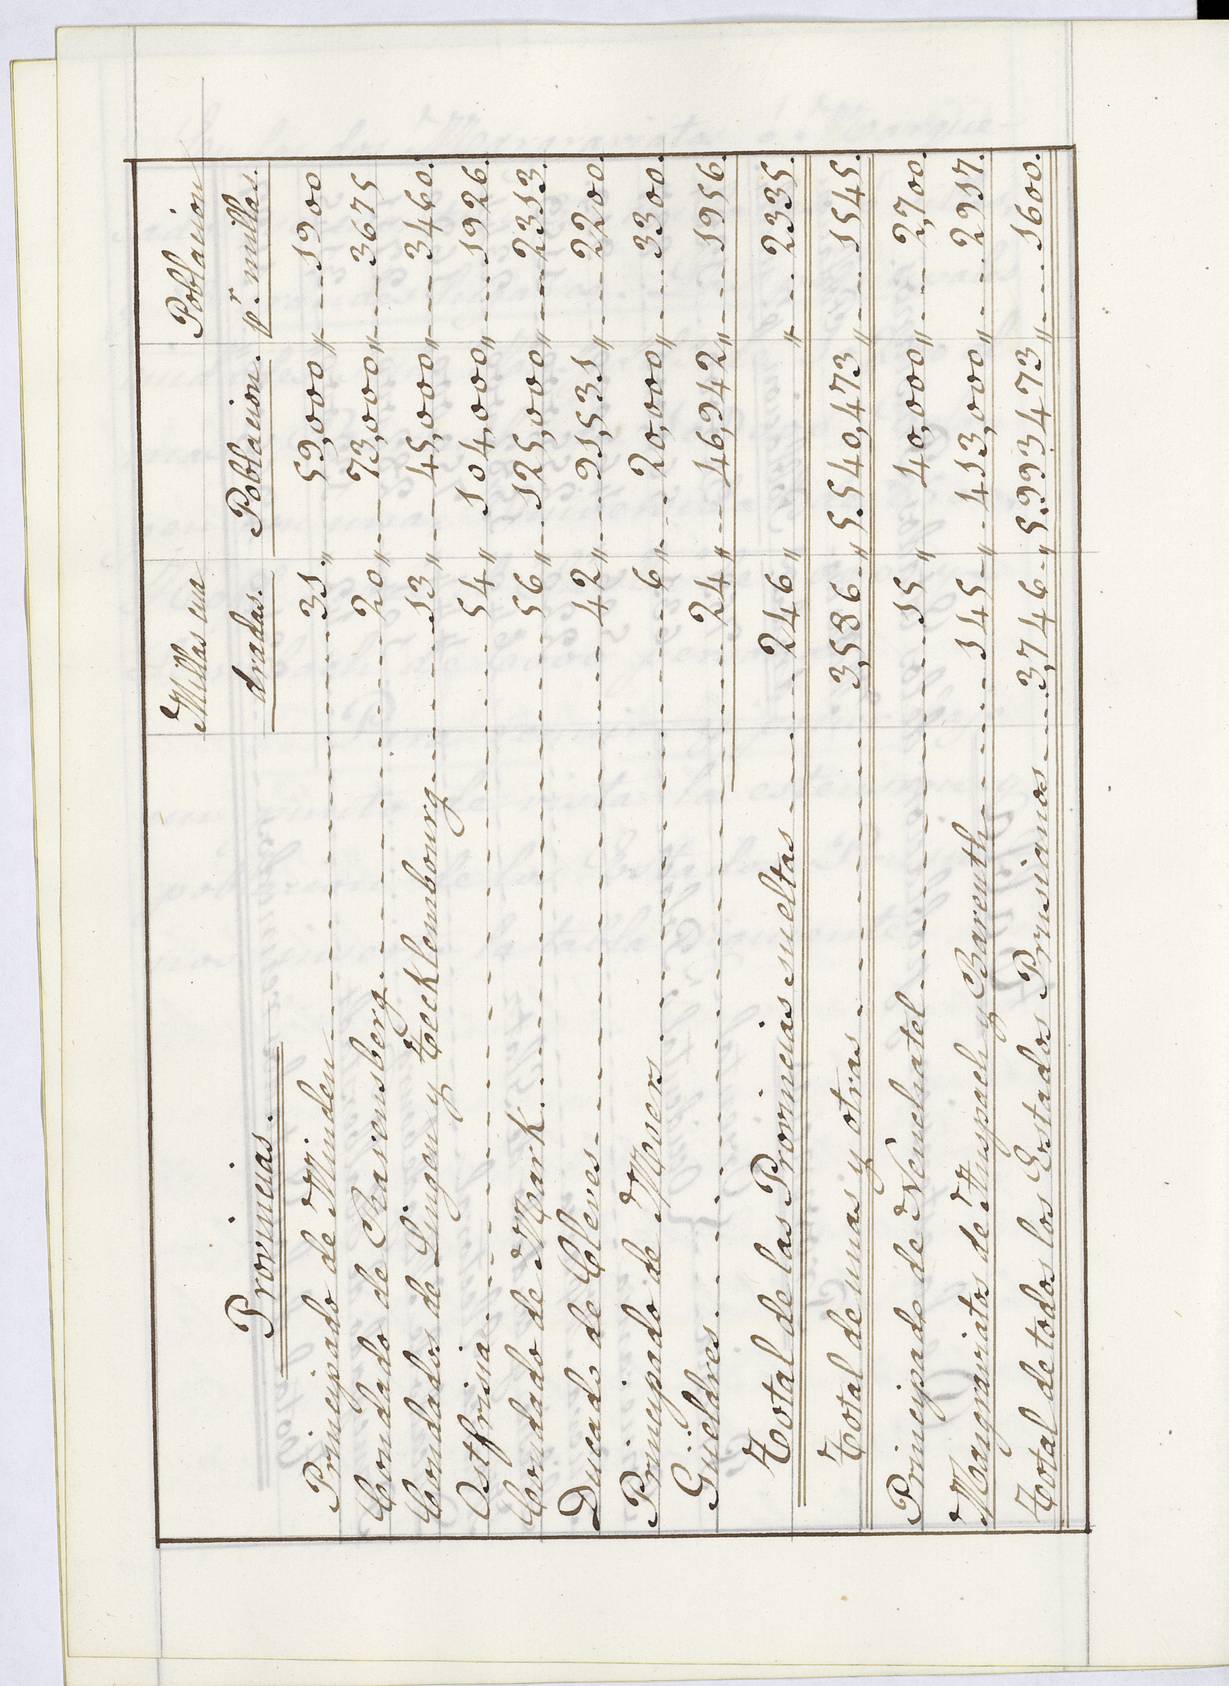 Millas cua Poblacion
Provincias. dradas. Poblacion. pr. milla.
Principado de Minden 31 " 59,000 " 1900
Condado de Rasiensberg 20 " 73,000 " 3675
Condados de Lingen y Tecklembourg 13 " 45,000 " 3460.
Ostfrisia 54 " 104,000 " 1926.
Condado de Mark 56 " 125,000 " 2313.
Ducado de Cleves 42 " 91,531 " 2200.
Principado de Mouers 6 " 20,000 " 3300.
Güeldres 24 " 46,942 " 1956.
Total de las Provincias sueltas 246 " " 2335.
Total de unas y otras 3,586 " 5.540,473 " 1545.
Principado de Neuchatel 15 " 40,000 " 2,700.
Margraviatos de Anspach y Bareuth 145 " 413,000 " 2917.
Total de todos los Estados Prusianos 3,746 " 5.993473 " 1600.